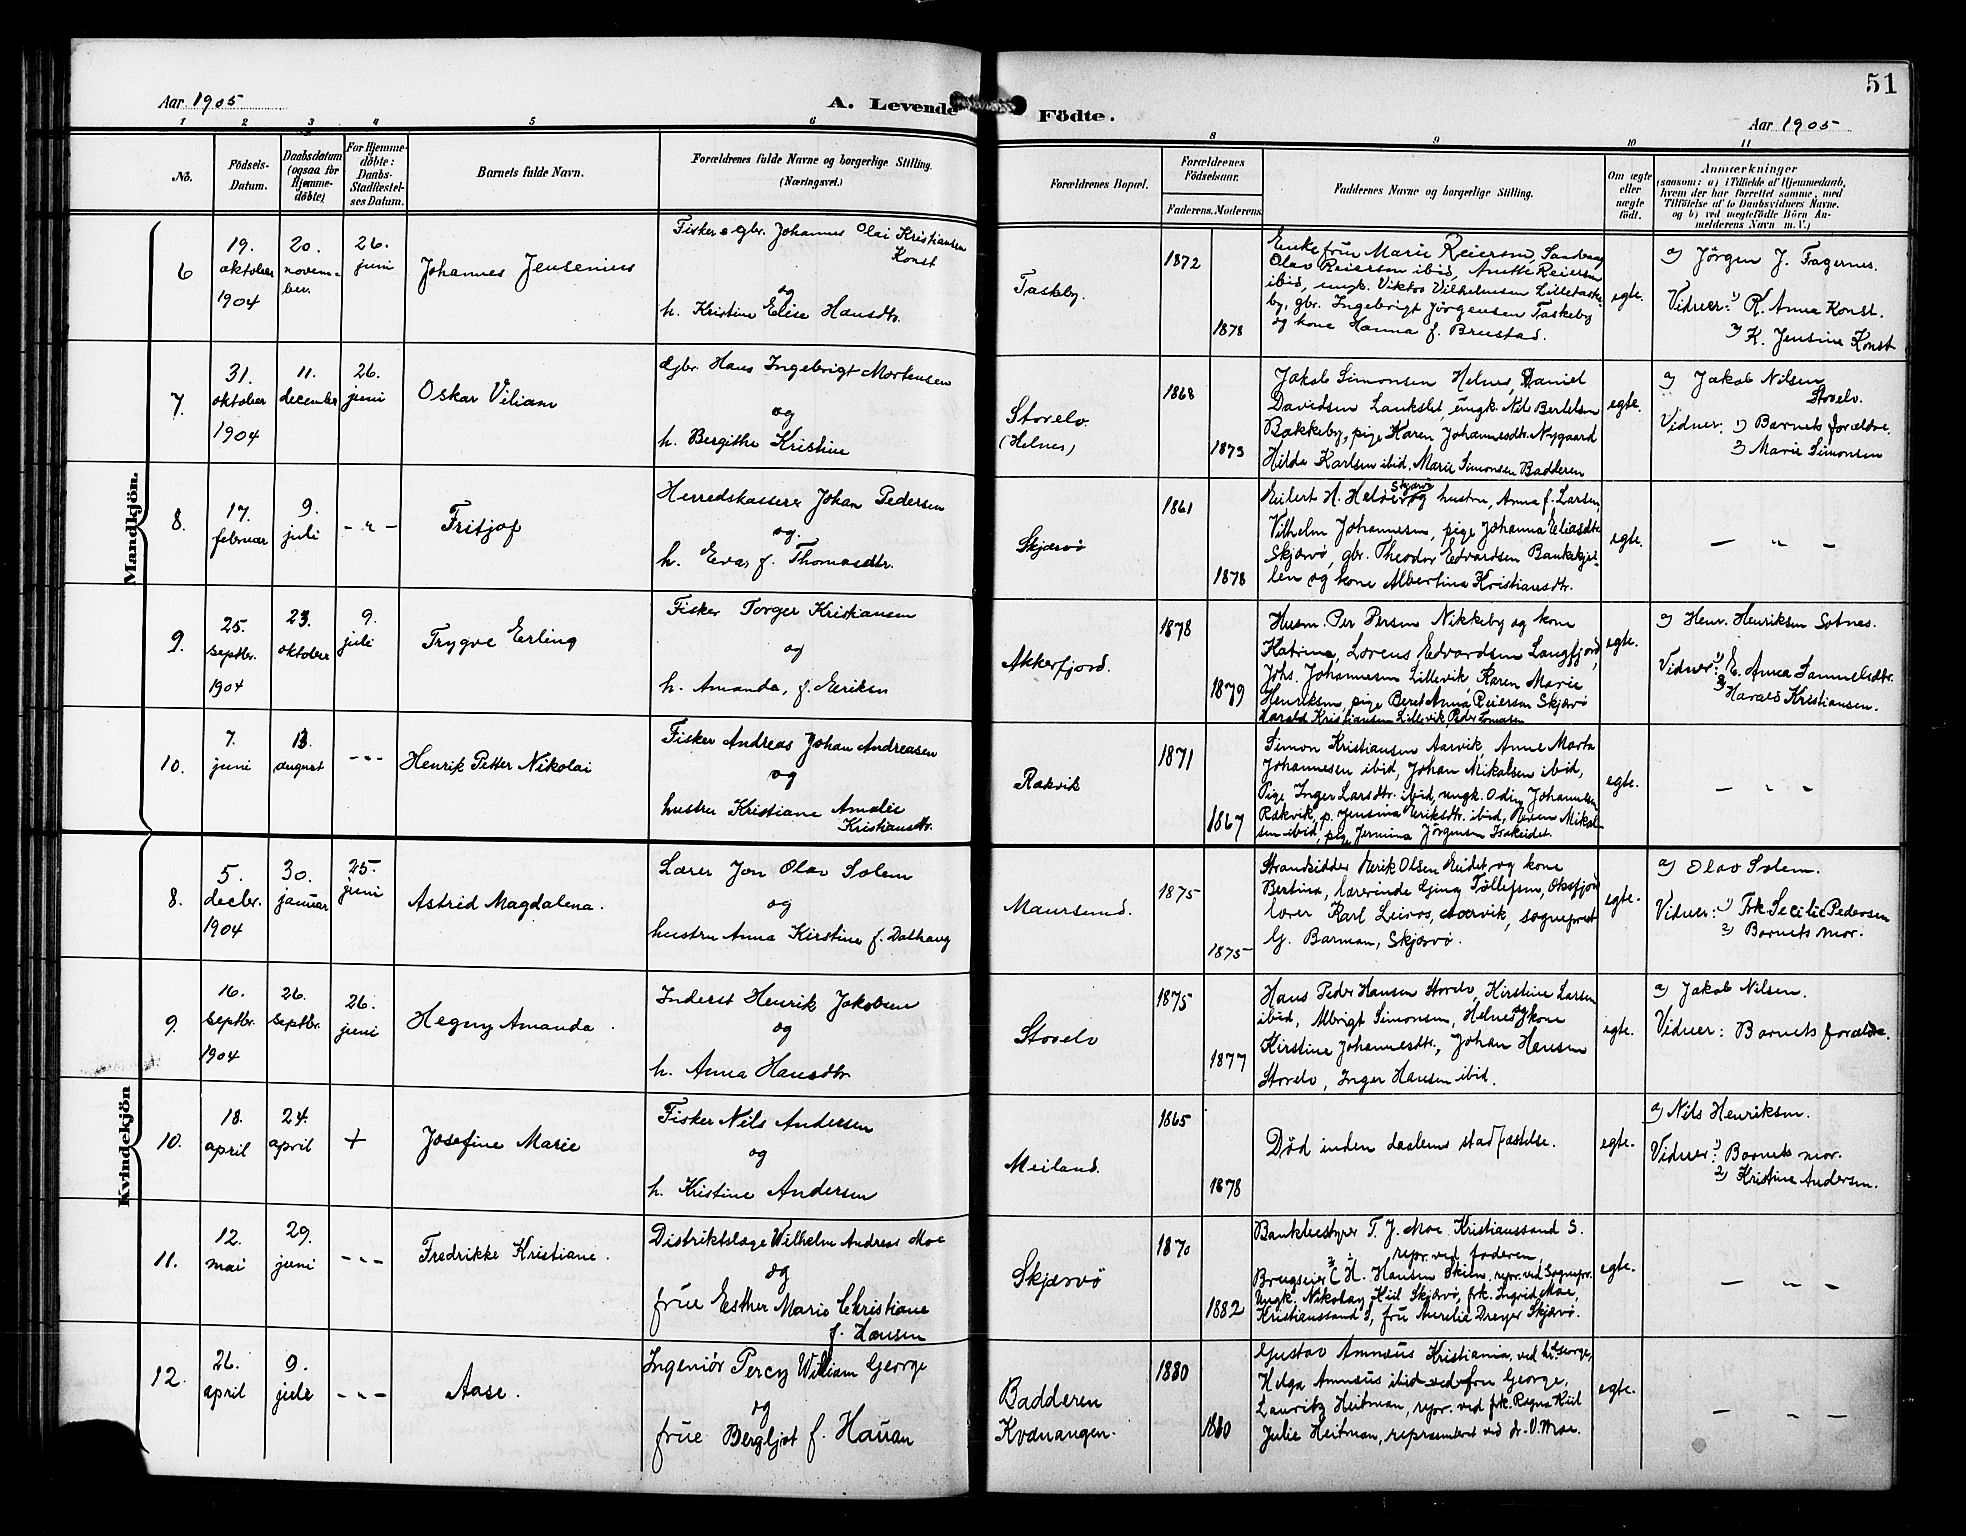 51
Aar 1905
A. Levende Födte.
Aar 1905
1 2 3 4 5 6 8 9 10 11
No.
Födsels-
Datum.
Daabsdatum
(ogsaa for
Hjemme-
döbte)
For Hjemme-
döbte:
Daabs-
Stadfæstel-
ses Datum.
Barnets fulde Navn.
Forældrenes fulde Navne og borgerlige Stilling.
(Næringsvei.)
Forældrenes Bopæl.
Forældrenes
Födselsaar.
Faderens. Moderens.
Faddernes Navne og borgerlige Stilling.
Om ægte
eller
uægte
födt.
Anmærkninger
(saasom: a) i Tilfælde af Hjemmedaab,
hvem der har forrettet samme, med
Tilföielse af to Daabsvidners Navne.
og b) ved uegtefödte Börn An-
melderens Navn m. V.)
Mandkjön.
6
19.
oktober
1904
20.
novem-
ber.
26.
juni
Johannes Jensenius
Fisker o gbr. Johannes Olai Kristiansen
Konst
og
h. Kristine Elise Hansdtr.
Taskeby.
1872
1878
Enkefrue Marie Reiersen,
Olav Reiersen ibid, Anette Reiersen
ibid, ungk. Viktor Vilhelmsen Lilletaske-
by, gbr. Ingebrigt Jörgensen Taskeby
og kone Hanna f. Brustad.
egte.
a) Jörgen J. Fagernes.
Vidner: 1) R. Anna Konst.
2) K. Jensine Konst
7.
31.
oktober
1904
11.
december
26.
juni
Oskar Viliam
Gbr. Hans Ingebrigt Mortensen
og
h. Bergithe Kristine
Storelv.
(Helnes)
1868
1873
Jakob Simonsen Helnes, Daniel
Davidsen Lankslet, ungk. Nils Bertelsen
Bakkeby, pige Karen Johannesdtr. Nygaard
Hilda Karlsen ibid, Marie Simonsen Badderen
egte.
a) Jakob Nilsen
Storelv.
Vidner: 1) Barnets forældre.
2) Marie Simonsen
8.
17.
februar
9.
juli
- " -
Fritjof
Herredskasserer Johan Pedersen
og
h. Eva f. Thomasdtr.
Skjærvö
1861
1878
Eilert H. Heløe Skjærvö og hustru, Anna f. Larsen,
Vilhelm Johannessen, pige Johanna Eliasdtr
Skjærvö, gbr. Theodor Edvardsen Bankekjei-
len og kone Albertina Kristiansdtr.
egte.
- " -
9.
25.
septbr.
1904
23.
oktober
9.
juli
Trygve Erling
Fisker Torger Kristiansen
og
h. Amanda, f. Eriksen
Akkerfjord.
1878
1879
Husm. Per Persen Nikkeby og kone
Katrina, Lorens Edvardsen Langfjord,
Johs. Johannesen Lillevik, Karen Marie
Henriksen, pige Beret Anna Reiersen Skjærvö
Harald Kristiansen Lillevik, Peder Tomasen
egte.
a) Henr. Henriksen Sotnes.
Vidner: 1) E. Anna Samuelsdtr.
2) Harald Kristiansen.
10.
7.
juni
13.
august
- " -
Henrik Petter Nikolai
Fisker Andreas Johan Andreasen
og
hustru Kristiane Amalie
Kristiansdtr.
Rakvik
1871
1867
Simon Kristiansen Aarvik, Anne Marta
Johannesen ibid, Johan Mikalsen ibid,
Pige Inger Larsdtr. ibid, ungk. Odin Johannesen
Rakvik, p. Jensina Eriksdtr. ibid, Mikal-
sen ibid, pige Jermina Jörgensen Isakeidet.
egte.
- " -
Kvindekjön
8.
5.
decbr.
1904
30.
januar
25.
juni
Astrid Magdalena.
Lærer Jon Olav Solem
og
hustru Anna Kirstine f. Dalhaug
Maursund.
1875
1875
Strandsidder Erik Olsen Eidet og kone
Bertina, lærerinde Gina Tollefsen, Oksfjord
lærer Karl Leiros, Aarvik, sogneprest
G. Barman, Skjærvö.
egte.
a) Olav Solem.
Vidner: 1) Frk Secilie Pedersen
2) Barnets mor.
9.
16.
septbr.
1904
26.
septbr.
26.
juni
Hegny Amanda.
Inderst Henrik Jakobsen
og
h. Anna Hansdtr.
Storelv
1875
1877
Hans Peder Hansen Storelv, Kirstine Larsen
ibid, Albrigt Simonsen, Helnes og kone
Kirstine Johannesdtr., Johan Hansen
Storelv, Inger Hansen ibid.
egte.
a) Jakob Nilsen.
Vidner: Barnets forældre.
10.
18.
april
24.
april
+
Josefine Marie
Fisker Nils Andersen
og
h. Kristine Andersen
Meiland.
1865
1878
Död inden daabens stadfæstelse.
egte.
a) Nils Henriksen.
Vidner: 1) Barnets mor.
2) Kristine Andersen.
11.
12.
mai
29.
juni
- " -
Fredrikke Kristiane.
Distriktslæge Wilhelm Andreas Moe
og
frue Esther Marie Christiane
f. Hansen
Skjærvö
1870
1882
Bankbestyrer T. J. Moe Kristianssand S.
repr. ved faderen,
Brugseier C. H. Hansen Skien, repr. ved Sognepr.
Ungk. Nikolay Hiil Skjærvö, frk. Ingrid Moe,
Kristianssand S, fru Aurelie Dreyer Skjærvö.
egte.
- " -
12.
26.
april
9.
jule
- " -
Aase.
Ingeniör Percy William George
og
frue Bergljot f. Hauan
Badderen
Kvænangen.
1880
1880
Gustav Amneus Kristiania, ved hr. George,
Helga Amneus ibid ved fru George,
Lauritz Heitman, repr. ved frk. Ragna Kiil
Julie Heitman, repræsenteret ved dr. V. Moe.
egte.
- " -